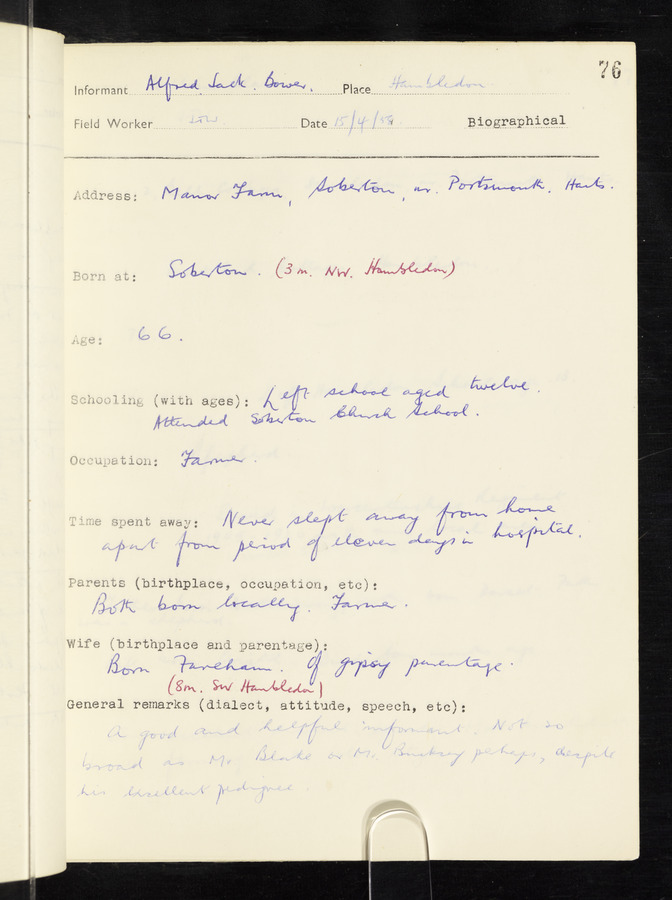 76
Informant Alfred Jack Bower. Place Hambledon
Field Worker Date 15/4/59 Biographical
Address: Manor Farm, Soberton, nr. Portsmouth. Hants.
Born at: Soberton. (3 m. NW. Hambledon)
Age: 66.
Schooling (with ages): Left school aged twelve.
Attended Soberton Church School.
Occupation: Farmer.
Time spent away: Never slept away from home
apart from period of eleven days in hospital.
Parents (birthplace, occupation, etc):
Both born locally. Farmer.
Wife (birthplace and parentage):
Born Fareham. Of gipsy parentage.
(8m. SW Hambledon)
General remarks (dialect, attitude, speech, etc):
A good and helpful informant. Not so
broad as Mr. Blake or Mr. perhaps, despite
his excellent pedigree.